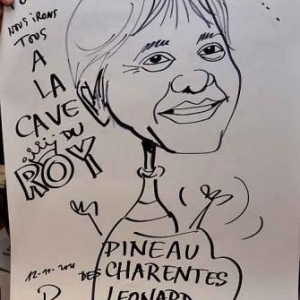 NOUS IRONS
TOUS
A
LA
CAVE
DU
ROY
PINEAU
DES CHARENTES
LEONARD